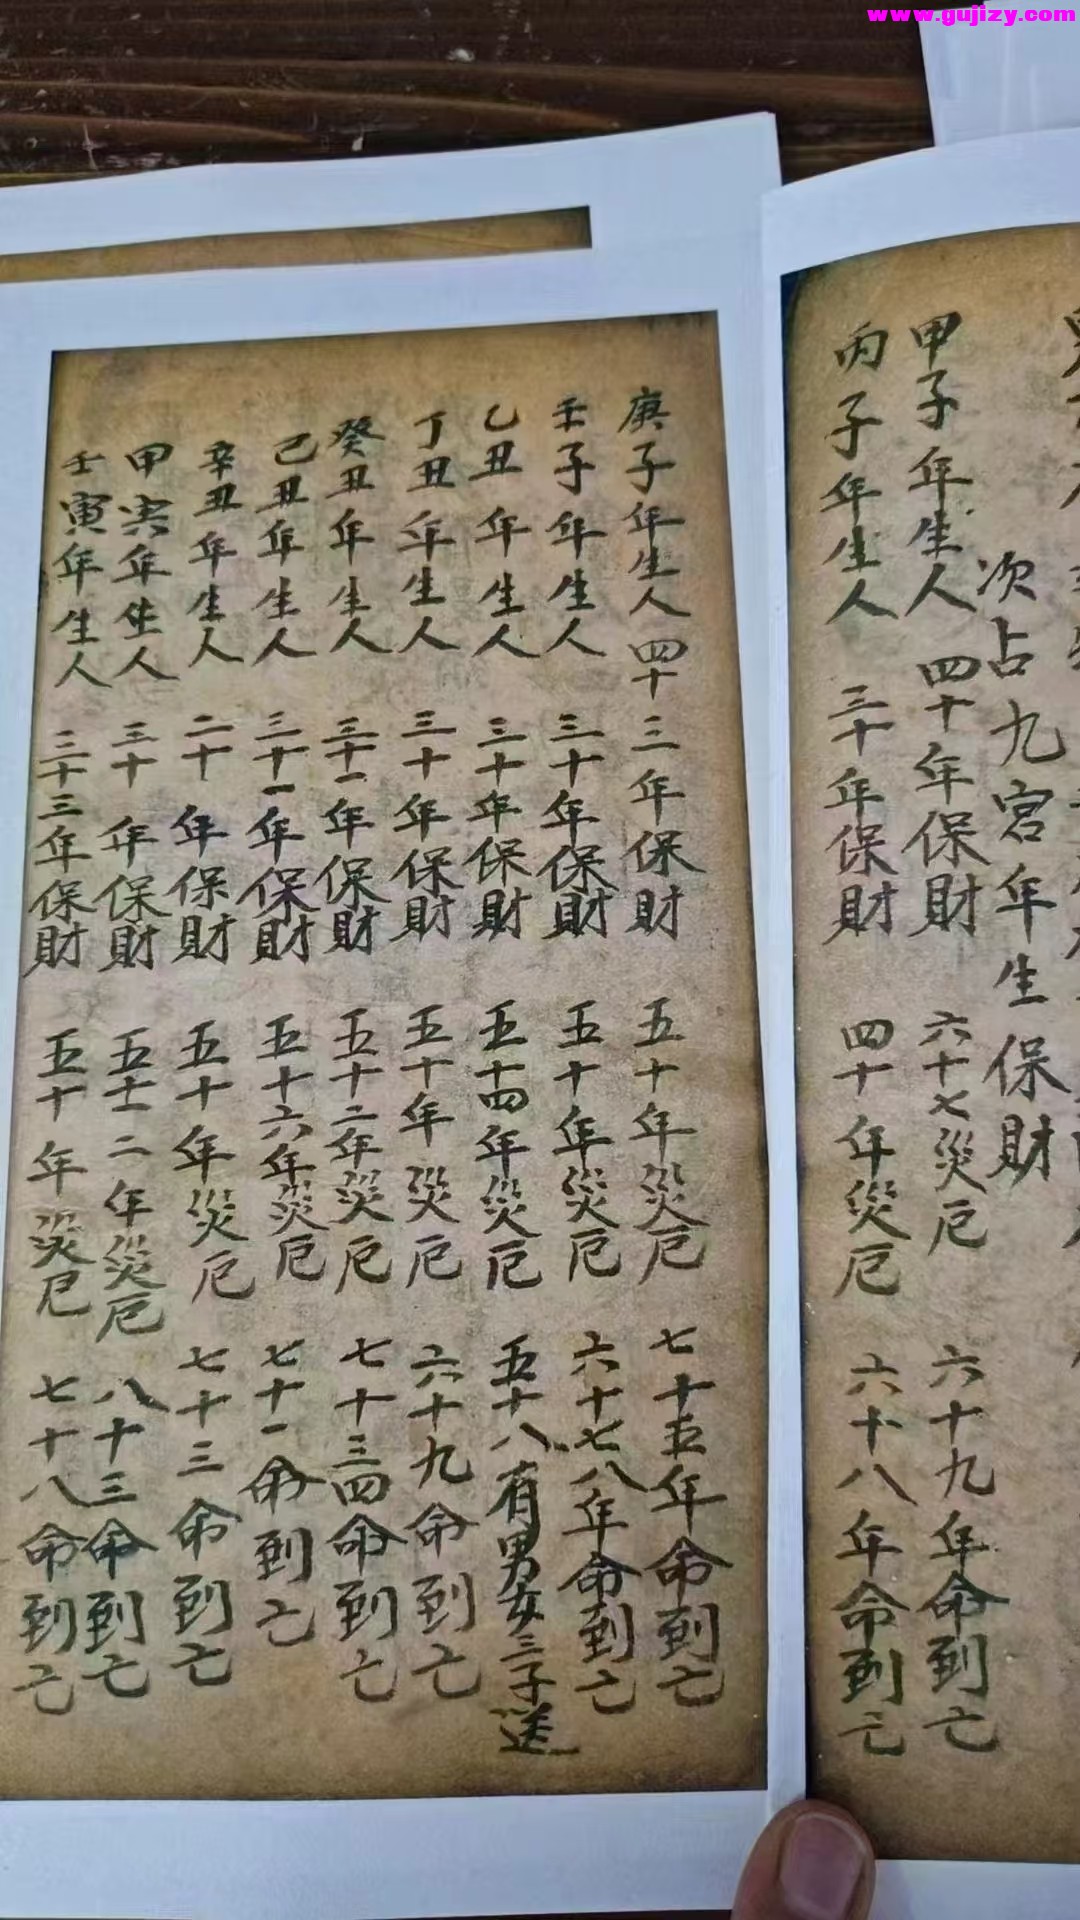 www.gujizy.com
次占九宫年生保財
甲子年生人 四十年保財 六十七災厄 六十九年命到亡
丙子年生人 三十年保財 四十年災厄 六十八年命到亡
庚子年生人 四十三年保財 五十年災厄 七十五年命到亡
壬子年生人 三十年保財 五十年災厄 六十七八年命到亡
乙丑年生人 三十年保財 五十四年災厄 五十八有男女三子送
丁丑年生人 三十年保財 五十年災厄 六十九命到亡
癸丑年生人 三十一年保財 五十二年災厄 七十三四命到亡
己丑年生人 三十一年保財 五十六年災厄 七十一命到亡
辛丑年生人 二十年保財 五十年災厄 七十三命到亡
甲寅年生人 三十年保財 五十一二年災厄 八十三命到亡
壬寅年生人 三十三年保財 五十年災厄 七十八命到亡